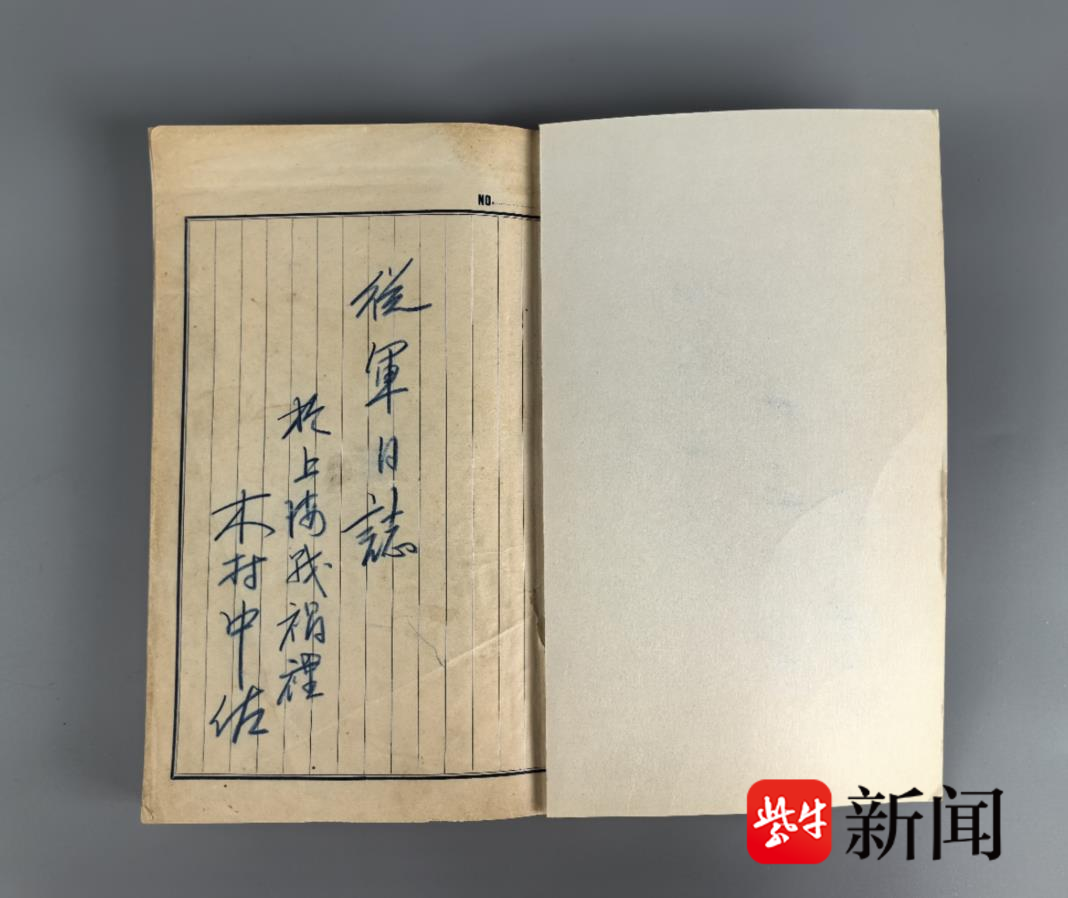 NO.
從軍日誌
於上海戰禍裡
木村中佐
紫牛新闻